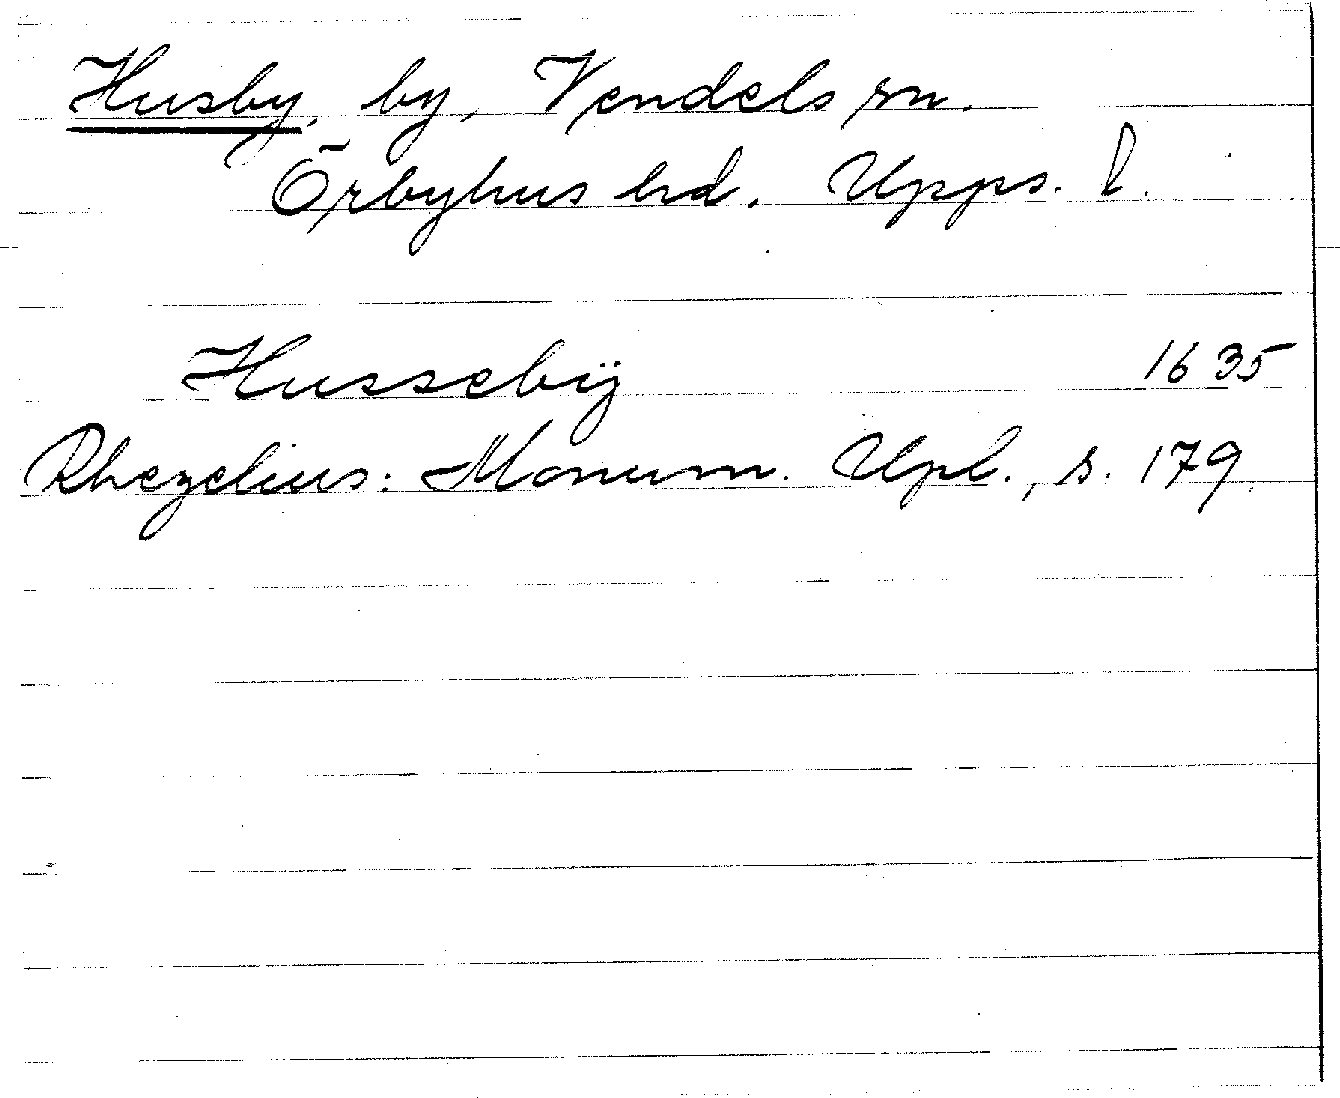 Husby, by, Vendels sn.
Örbyhus hd. Upps. l.
Hussebÿ 1635
Rhezelius: Monum. Upl., s. 179.